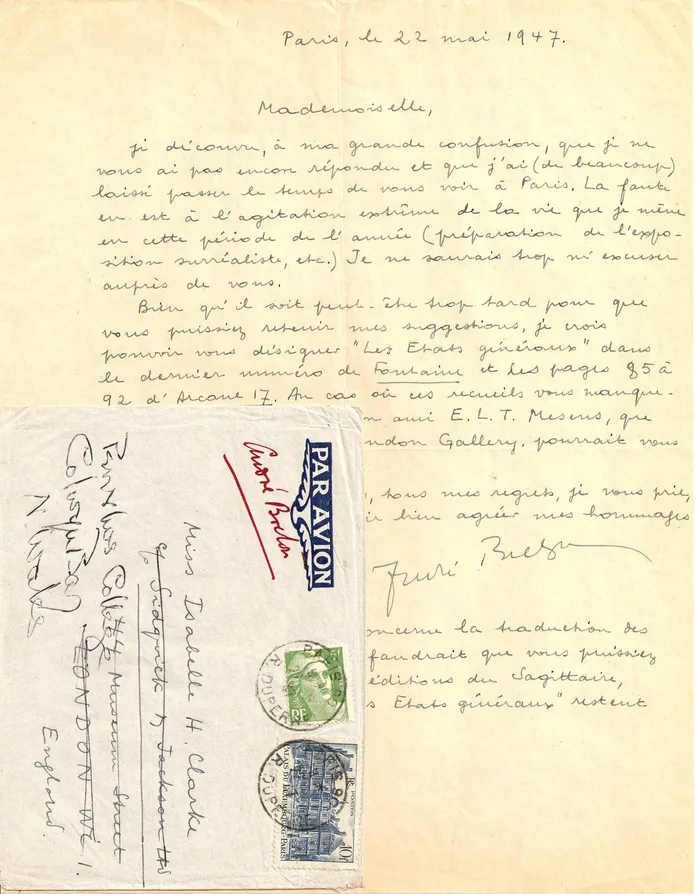 Paris, le 22 mai 1947.
Mademoiselle,
je découvre, à ma grande confusion, que je ne
vous ai pas encore répondu et que j'ai (de beaucoup)
laissé passer le temps de vous voir à Paris. La faute
en est à l'agitation extrême de la vie que je mène
en cette période de l'année (préparation de l'expo-
sition surréaliste, etc.) Je ne saurais trop m'excuser
auprès de vous.
Bien qu'il soit peut-être trop tard pour que
vous puissiez retenir mes suggestions, je crois
pouvoir vous désigner "Les Etats généraux" dans
le dernier numéro de Fontaine et les pages 85 à
92 d'Arcane 17. Au cas où ces recueils vous manque-
n ami E.L.T. Mesens, que
ndon Gallery, pourrait vous
, tous mes regrets, je vous prie,
ir bien agréer mes hommages
André Breton
oncerne la traduction des
faudrait que vous puissiez
éditions du Sagittaire,
s Etats généraux" restent
PAR AVION
André Breton
Miss Isabelle H. Clarke
c/o Sidgwick & Jackson Ltd
Museum Street
LONDON W.C.1.
England.
N. Wales
RF
PALAIS DU LUXEMBOURG-PARIS
POSTES
10F
PARIS
R. DUPERRÉ
PARIS
R. DUPERRÉ